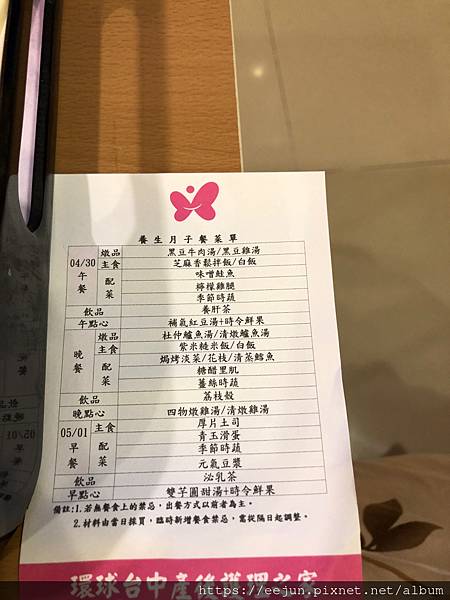 養生月子餐菜單
04/30 午餐 燉品 黑豆牛肉湯/黑豆雞湯
主食 芝麻香鬆拌飯/白飯
配菜 味噌鮭魚
檸檬雞腿
季節時蔬
飲品 養肝茶
午點心 補氣紅豆湯+時令鮮果
晚餐 燉品 杜仲鱸魚湯/清燉鱸魚湯
主食 紫米糙米飯/白飯
配菜 焗烤淡菜/花枝/清蒸鱈魚
糖醋里肌
薑絲時蔬
飲品 荔枝殼
晚點心 四物燉雞湯/清燉雞湯
05/01 早餐 主食 厚片土司
配菜 青玉滑蛋
季節時蔬
元氣豆漿
飲品 泌乳茶
早點心 雙芋圓甜湯+時令鮮果
備註:1.若無餐食上的禁忌，出餐方式以前者為主。
2.材料由當日採買，臨時新增餐食禁忌，需從隔日起調整。
環球台中產後護理之家
https://eejun.pixnet.net/album